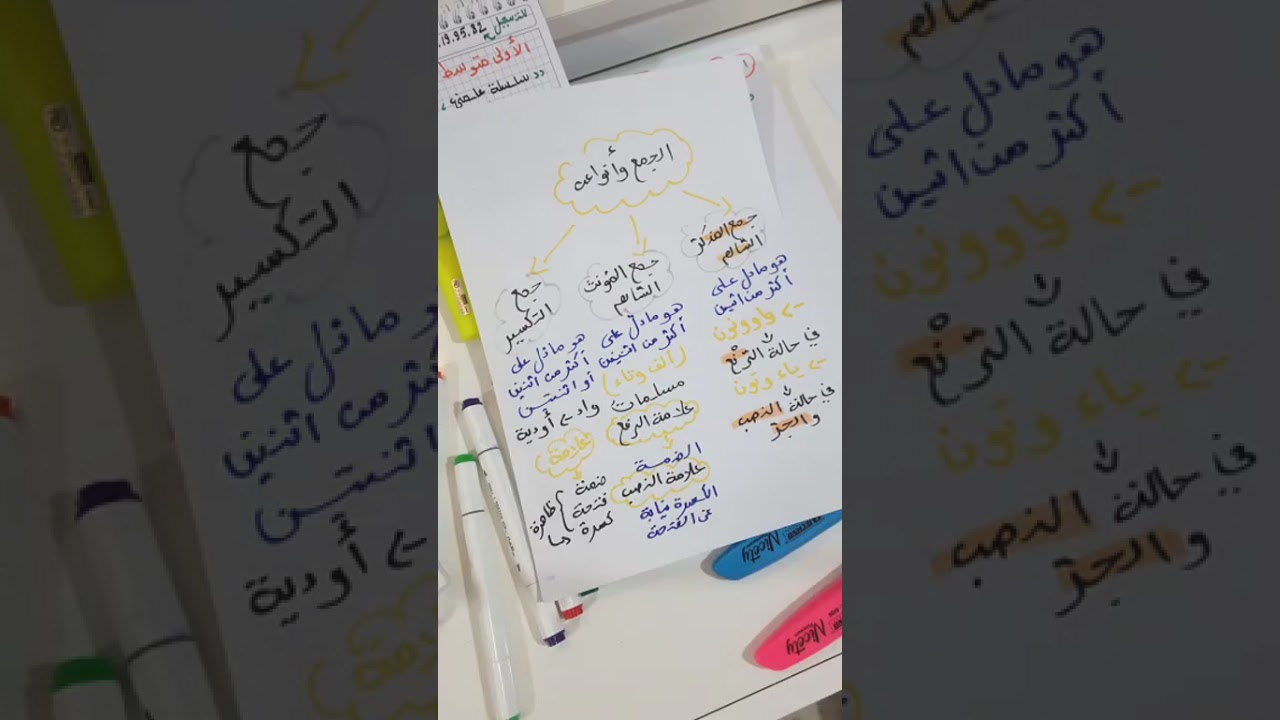 للتسجيل
.19.95.82
الأولى متوسط
الجمع وأنواعه
جمع المذكر
السالم
هو ما دل على
أكثر من اثنين
-> واو ونون
في حالة الترفع
-> ياء ونون
في حالة النصب
والجر
جمع المؤنث
السالم
هو ما دل على
أكثر من اثنين
(ألف وتاء)
مسلمات
علامة الرفع
الضمة
علامة النصب
الكسرة نيابة
عن الفتحة
جمع
التكسير
هو ما دل على
أكثر من اثنين
أو اثنتين
واد -> أودية
علامة
ضمة
فتحة
كسرة
ظاهرة
Nicety
Nicety